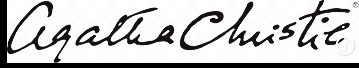 Agatha Christie®